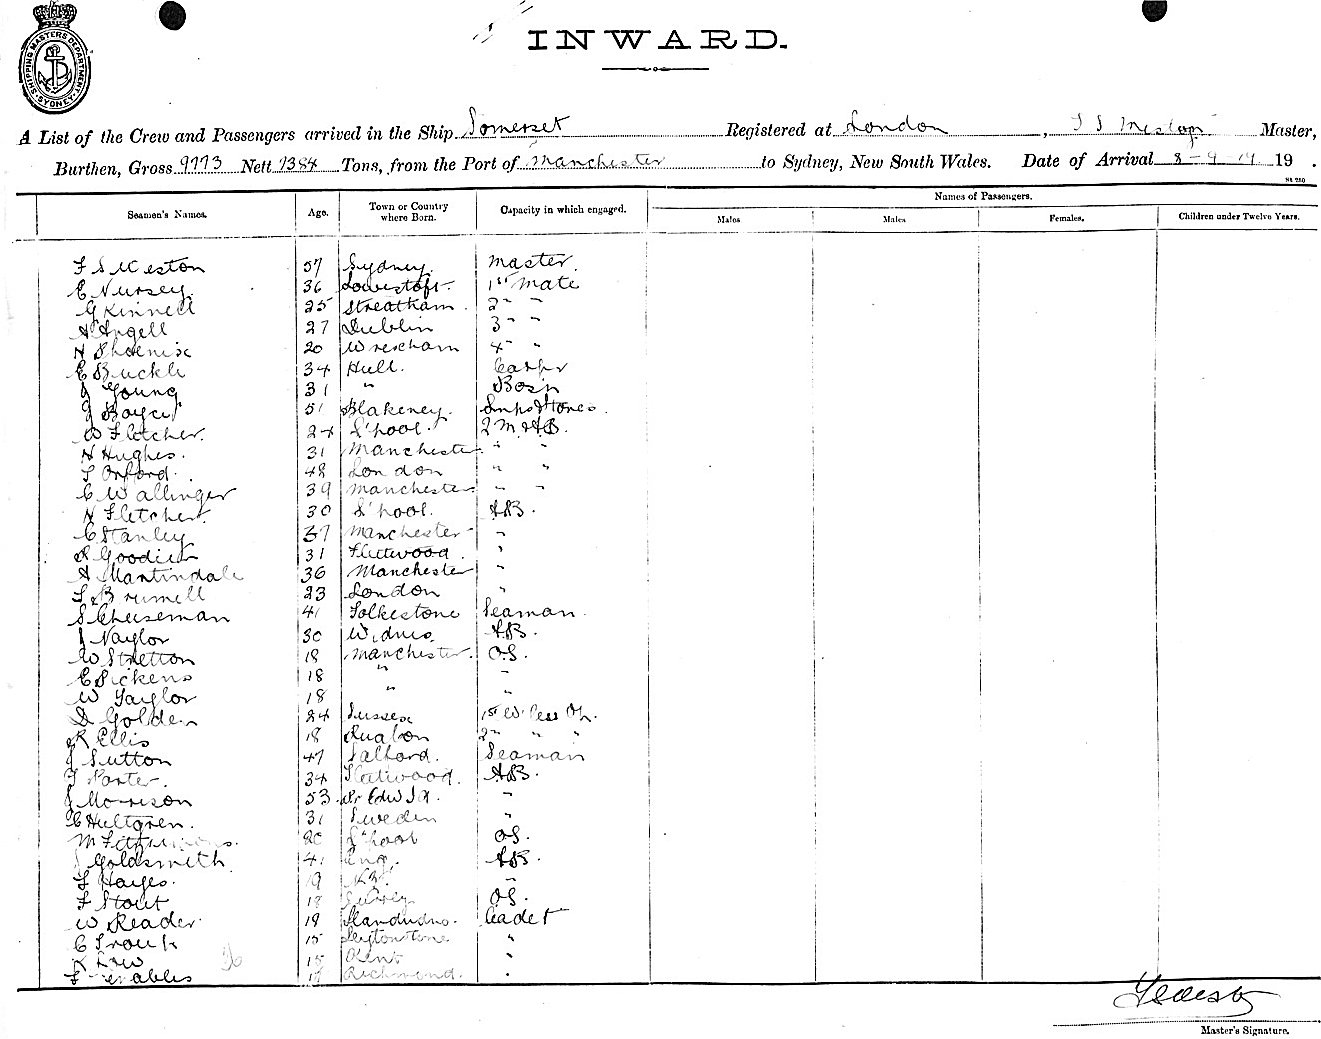 SHIPPING MASTERS DEPARTMENT SYDNEY
INWARD.
A List of the Crew and Passengers arrived in the Ship Somerset Registered at London, Master,
Burthen, Gross 9773 Nett 7384 Tons, from the Port of Manchester to Sydney, New South Wales. Date of Arrival 8-9-19 19 .
Names of Passengers.
Seamen's Names. Age. Town or Country where Born. Capacity in which engaged. Males Males Females. Children under Twelve Years.
57 Sydney. Master.
E Nursey 36 Lowestoft. 1st Mate
G Kinnell 25 Streatham. 2" "
A Angell 27 Dublin 3" "
H Phoenix 20 Wrexham 4" "
C Buckle 34 Hull. Carpr
J Young 31 " Bosn
J 51 Blakeney.
W Fletcher. 24 L'pool. 2 M & AB.
H Hughes. 31 Manchester " "
Orford. 48 London " "
C Wallinger 39 Manchester " "
H Fletcher. 30 L'pool. AB.
C Stanley 37 Manchester "
R Goodier 31 Fleetwood. "
A Martindale 36 Manchester "
Brumell 23 London "
S Cheeseman 41 Folkestone Seaman.
J Naylor 30 Widnes. AB.
W Stretton 18 Manchester. OS.
C Dickens 18 " "
W Taylor 18 " "
D Golden 24 Sussex 1st W'less Op.
R Ellis 18 Ruabon 2" " "
J Sutton 47 Salford. Seaman
Porter. 34 Fleetwood. AB.
J Morrison 53 Pr Edw Id. "
C Hultgren. 31 Sweden "
M 20 L'pool OS.
J Goldsmith 41 Eng. AB.
F Hayes. 19 N.Z. "
F Stout 18 OS.
W Reader. 19 Llandudno. Cadet
C 15 Leytonstone "
R Law 15 Kent "
Richmond. "
36
Master's Signature.